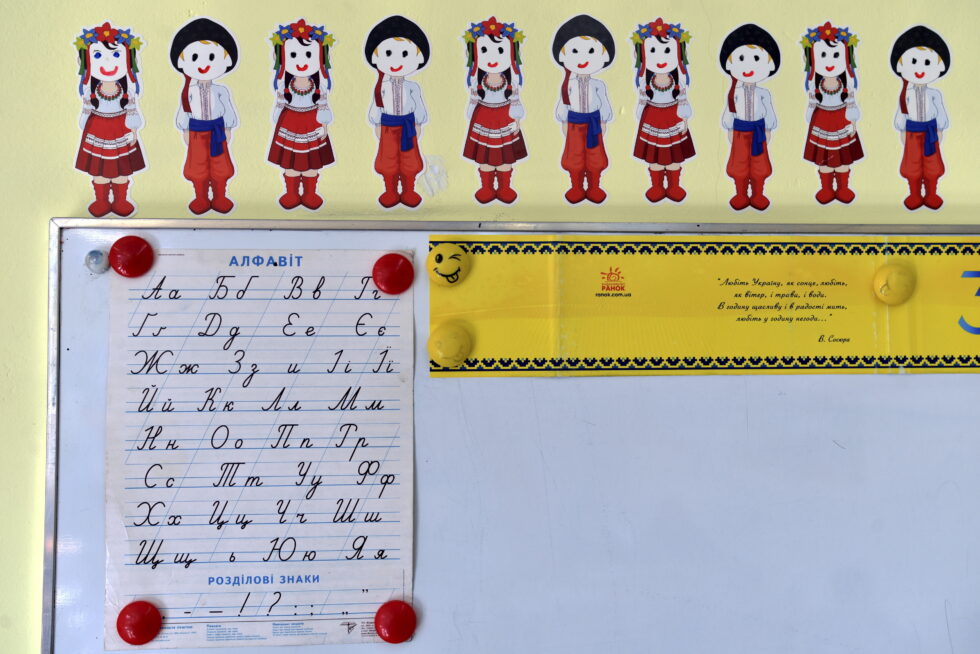 АЛФАВІТ
Аа Бб Вв Гг
Ґґ Дд Ее Єє
Жж Зз и Іі Її
Йй Кк Лл Мм
Нн Оо Пп Рр
Сс Тт Уу Фф
Хх Цц Чч Шш
Щщ ь Юю Яя
РОЗДІЛОВІ ЗНАКИ
. - – ! ? : ; „ ”
РАНОК
ranok.com.ua
"Любіть Україну, як сонце, любіть,
як вітер, і трави, і води.
В годину щасливу і в радості мить,
любіть у годину негоди..."
В. Сосюра